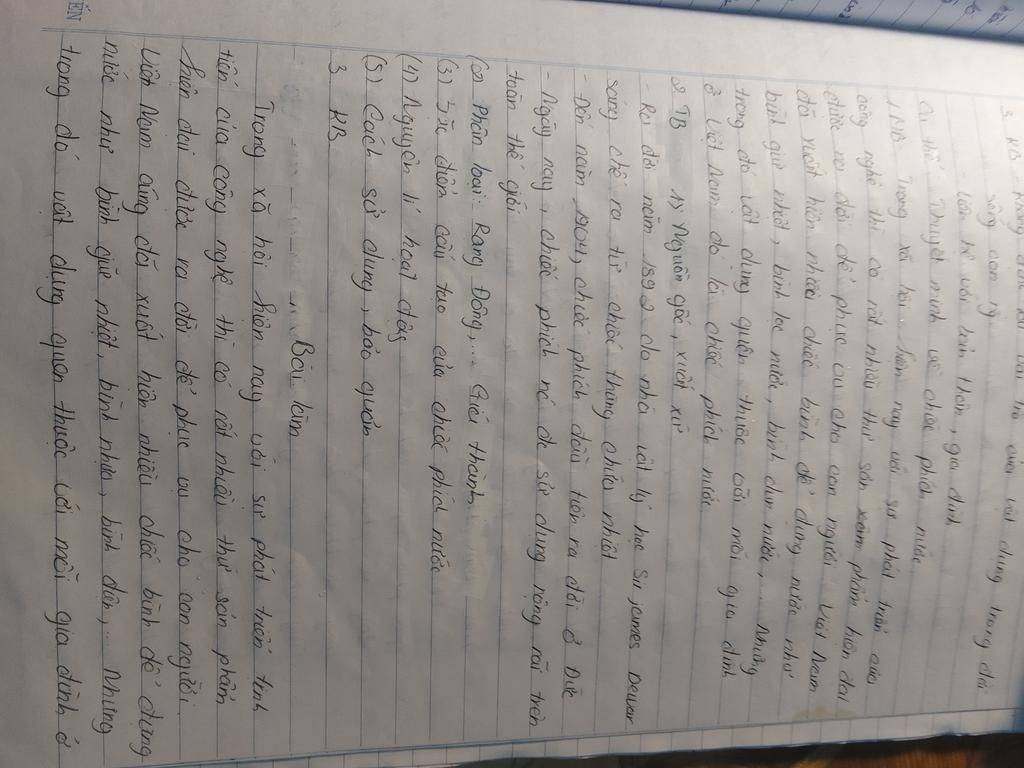 3. KB - Khẳng định lại vai trò của vật dụng trong đời
sống con ng
- Liên hệ với bản thân, gia đình
Cụ thể: Thuyết minh về chiếc phích nước
1. MB Trong xã hội hiện nay với sự phát triển của
công nghệ thì có rất nhiều thứ sản phẩm hiện đại
được ra đời để phục cụ cho con người. Việt Nam
đã xuất hiện nhiều chiếc bình để đựng nước như
bình giữ nhiệt, bình lọc nước, bình đun nước,... Nhưng
trong đó vật dụng quen thuộc với mỗi gia đình
ở Việt Nam đó là chiếc phích nước
2. TB 1) Nguồn gốc, xuất xứ
- Ra đời năm 1892 do nhà vật lý học Sir James Dewar
sáng chế ra từ chiếc thùng chứa nhiệt
- Đến năm 1904, chiếc phích đầu tiên ra đời ở Đức
- Ngày nay, chiếc phích nó đc sử dụng rộng rãi trên
toàn thế giới
(2) Phân loại: Rạng Đông,... Giá thành
(3) Đặc điểm cấu tạo của chiếc phích nước
(4) Nguyên lí hoạt động
(5) Cách sử dụng, bảo quản
3 KB
Bài làm
Trong xã hội hiện nay với sự phát triển tinh
tiến của công nghệ thì có rất nhiều thứ sản phẩm
hiện đại được ra đời để phục cụ cho con người.
Việt Nam cũng đã xuất hiện nhiều chiếc bình để đựng
nước như bình giữ nhiệt, bình nhựa, bình điện,... Nhưng
trong đó vật dụng quen thuộc với mỗi gia đình ở